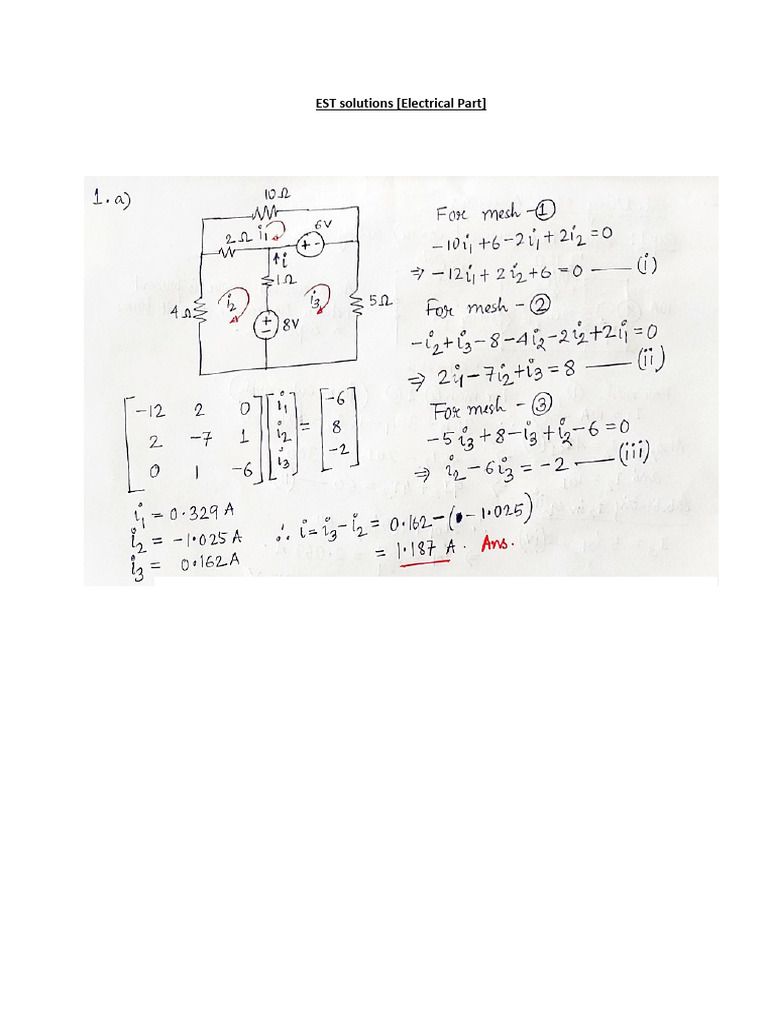 EST solutions [Electrical Part]
1. a)
10Ω
6V
2Ω i₁
↑i
1Ω
4Ω i₂ i₃ 5Ω
8V
For mesh - ①
-10i₁+6-2i₁+2i₂=0
⇒ -12i₁+2i₂+6=0 —— (i)
For mesh - ②
-i₂+i₃-8-4i₂-2i₂+2i₁=0
⇒ 2i₁-7i₂+i₃=8 —— (ii)
For mesh - ③
-5i₃+8-i₃+i₂-6=0
⇒ i₂-6i₃=-2 —— (iii)
[-12 2 0] [i₁] = [-6]
[2 -7 1] [i₂] = [8]
[0 1 -6] [i₃] = [-2]
i₁=0.329A
i₂=-1.025A
i₃= 0.162A
∴ i=i₃-i₂= 0.162-(-1.025)
= 1.187 A. Ans.